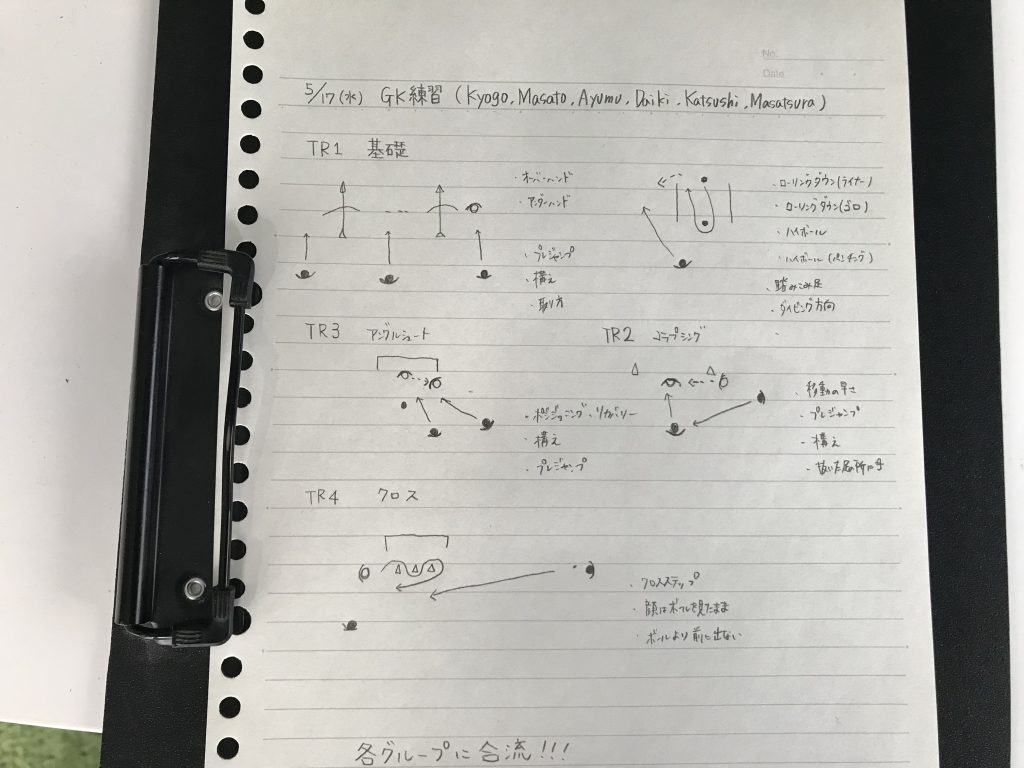 No.
Date
5/17(水) GK練習 (Kyogo, Masato, Ayumu, Daiki, Katsushi, Masatsura)
TR1 基礎
・オーバーハンド
・アンダーハンド
・プレジャンプ
・構え
・取り方
・ローリングダウン(ライナー)
・ローリングダウン(ゴロ)
・ハイボール
・ハイボール(パンチング)
・踏みこみ足
・ダイビング方向
TR3 アングルシュート
・ポジショニング、リカバリー
・構え
・プレジャンプ
TR2 コラプシング
・移動の早さ
・プレジャンプ
・構え
TR4 クロス
・クロスステップ
・顔はボールを見たまま
・ボールより前に出ない
各グループに合流!!!